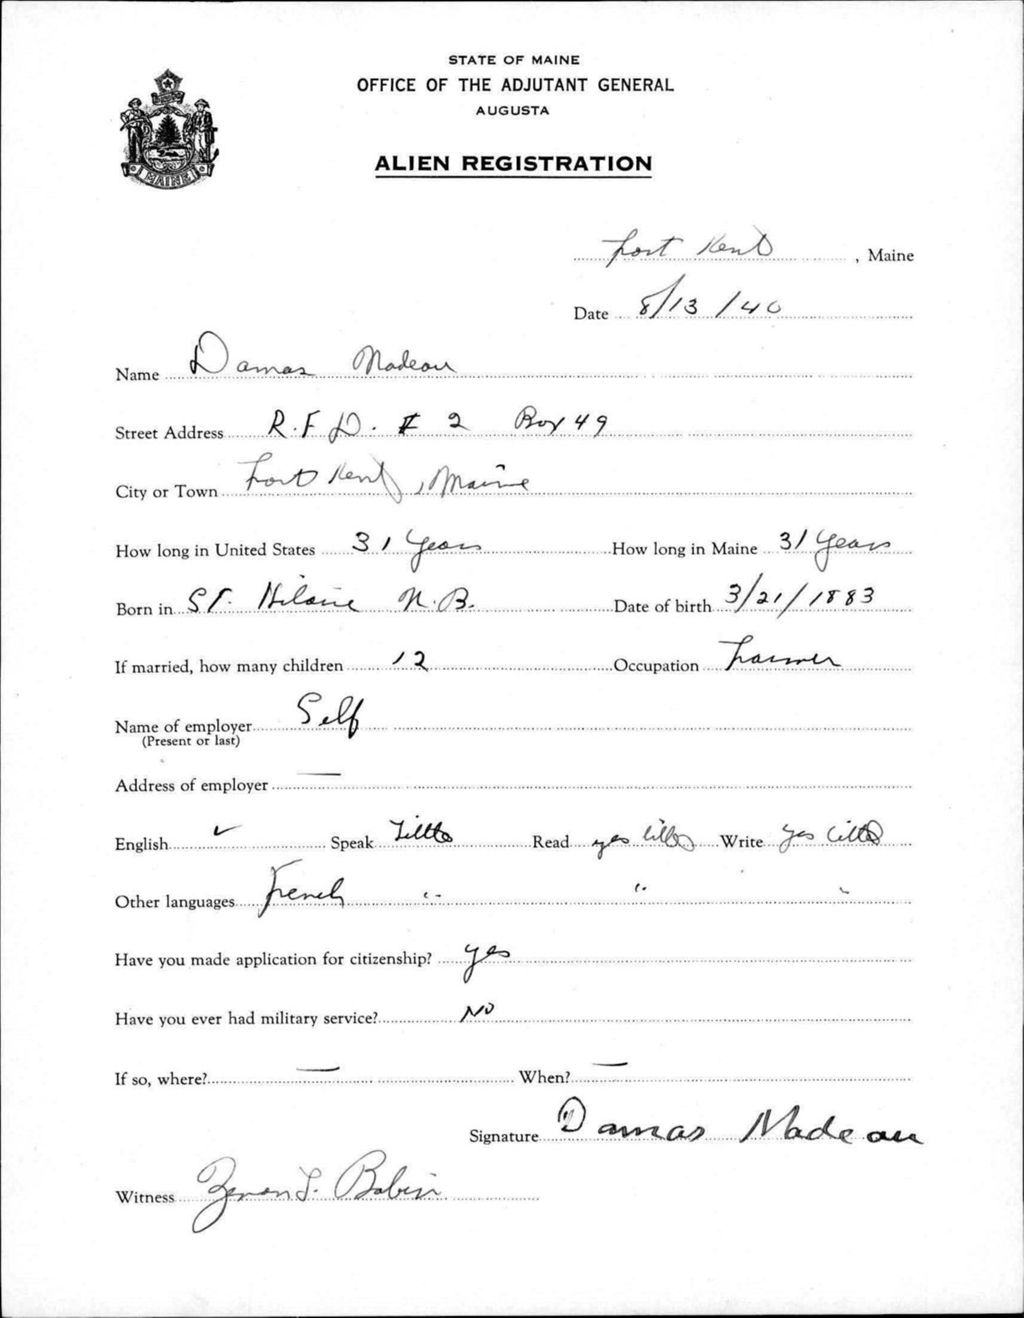 STATE OF MAINE
OFFICE OF THE ADJUTANT GENERAL
AUGUSTA
MAINE
ALIEN REGISTRATION
Fort Kent, Maine
Date 8/13/40
Name Damas Nadeau
Street Address R.F.D. # 2 Box 49
City or Town Fort Kent, Maine
How long in United States 31 Years How long in Maine 31 Years
Born in St. Hilaire N.B. Date of birth 3/21/1883
If married, how many children 12 Occupation Farmer
Name of employer Self
(Present or last)
Address of employer —
English ✓ Speak Little Read yes little Write yes little
Other languages French " " "
Have you made application for citizenship? yes
Have you ever had military service? No
If so, where? — When? —
Signature Damas Nadeau
Witness L. Babin